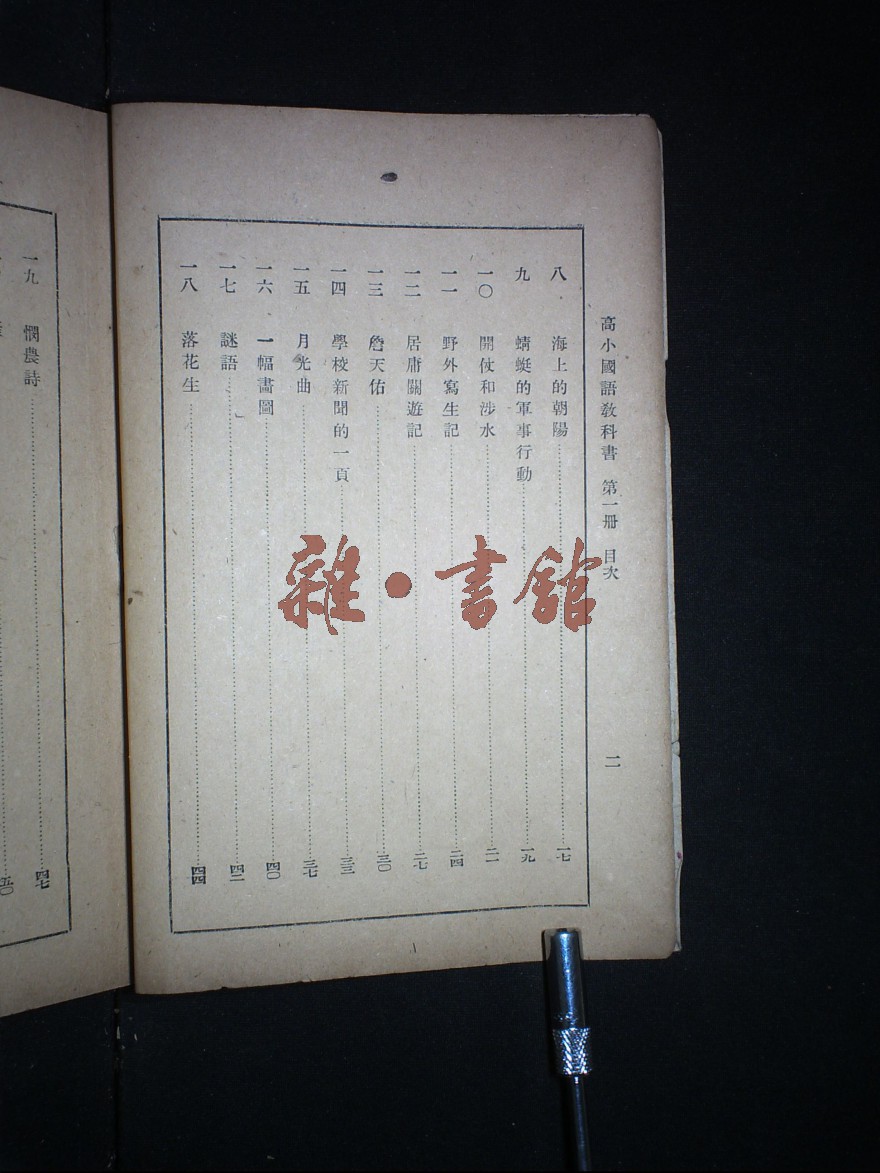 高小國語教科書 第一冊 目次
二
八 海上的朝陽 一七
九 蜻蜓的軍事行動 一九
一〇 開仗和涉水 二一
一一 野外寫生記 二四
一二 居庸關遊記 二七
一三 詹天佑 三〇
一四 學校新聞的一頁 三三
一五 月光曲 三七
一六 一幅畫圖 四〇
一七 謎語 四二
一八 落花生 四四
一九 憫農詩 四七
五〇
雜·書館